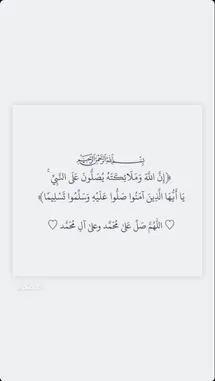 بِسْمِ اللَّهِ الرَّحْمَٰنِ الرَّحِيمِ
﴿إِنَّ اللَّهَ وَمَلَائِكَتَهُ يُصَلُّونَ عَلَى النَّبِيِّ ۚ
يَا أَيُّهَا الَّذِينَ آمَنُوا صَلُّوا عَلَيْهِ وَسَلِّمُوا تَسْلِيمًا﴾
♡ اللَّهُمَّ صَلِّ عَلىٰ مُحَمَّد وعلىٰ آلِ مُحَمَّد ♡